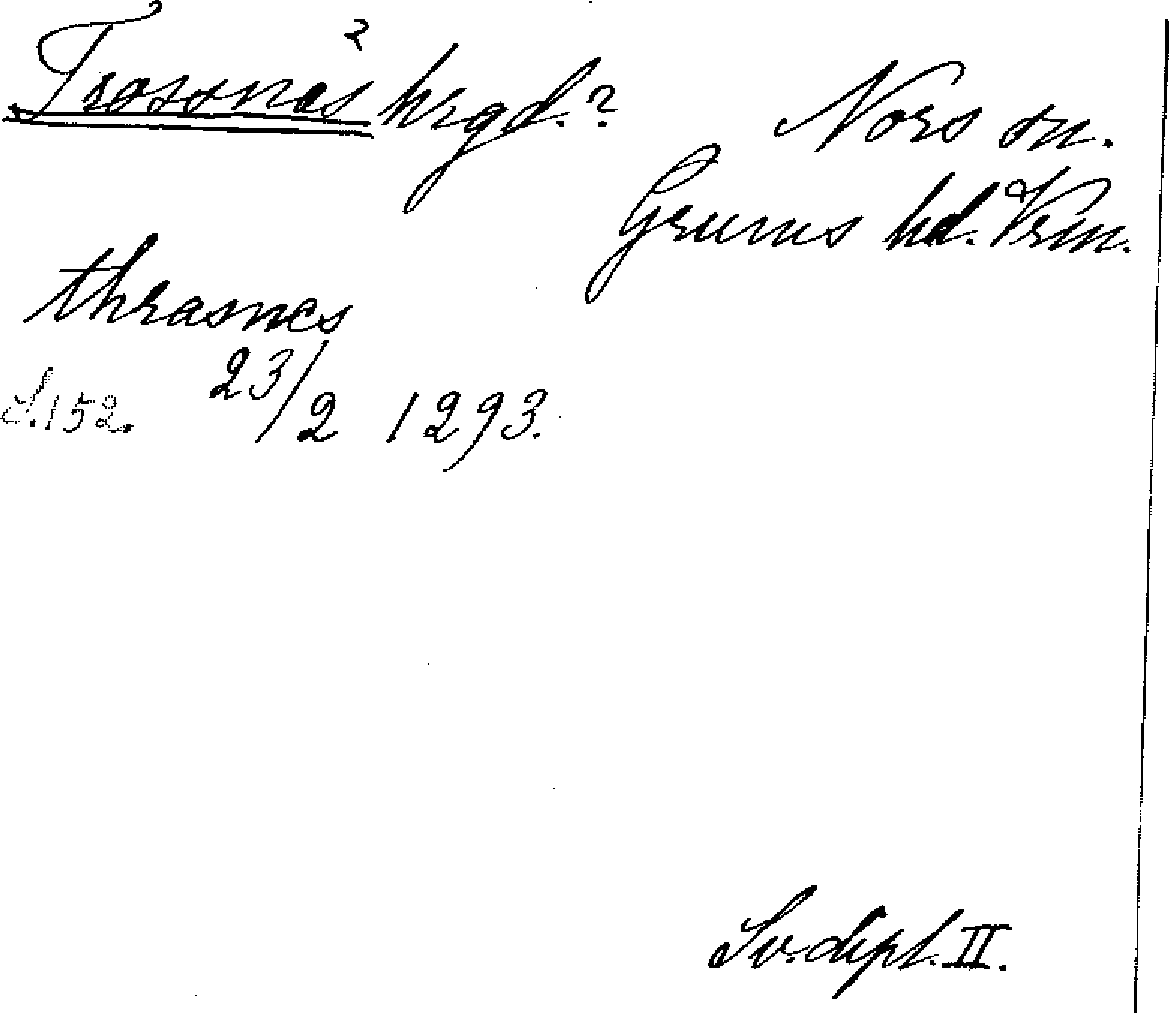 Trossnäs hrgd.? Nors sn.
Grums hd. Vrm.
thrasnes
S. 152. 23/2 1293.
Sv. dipl. II.